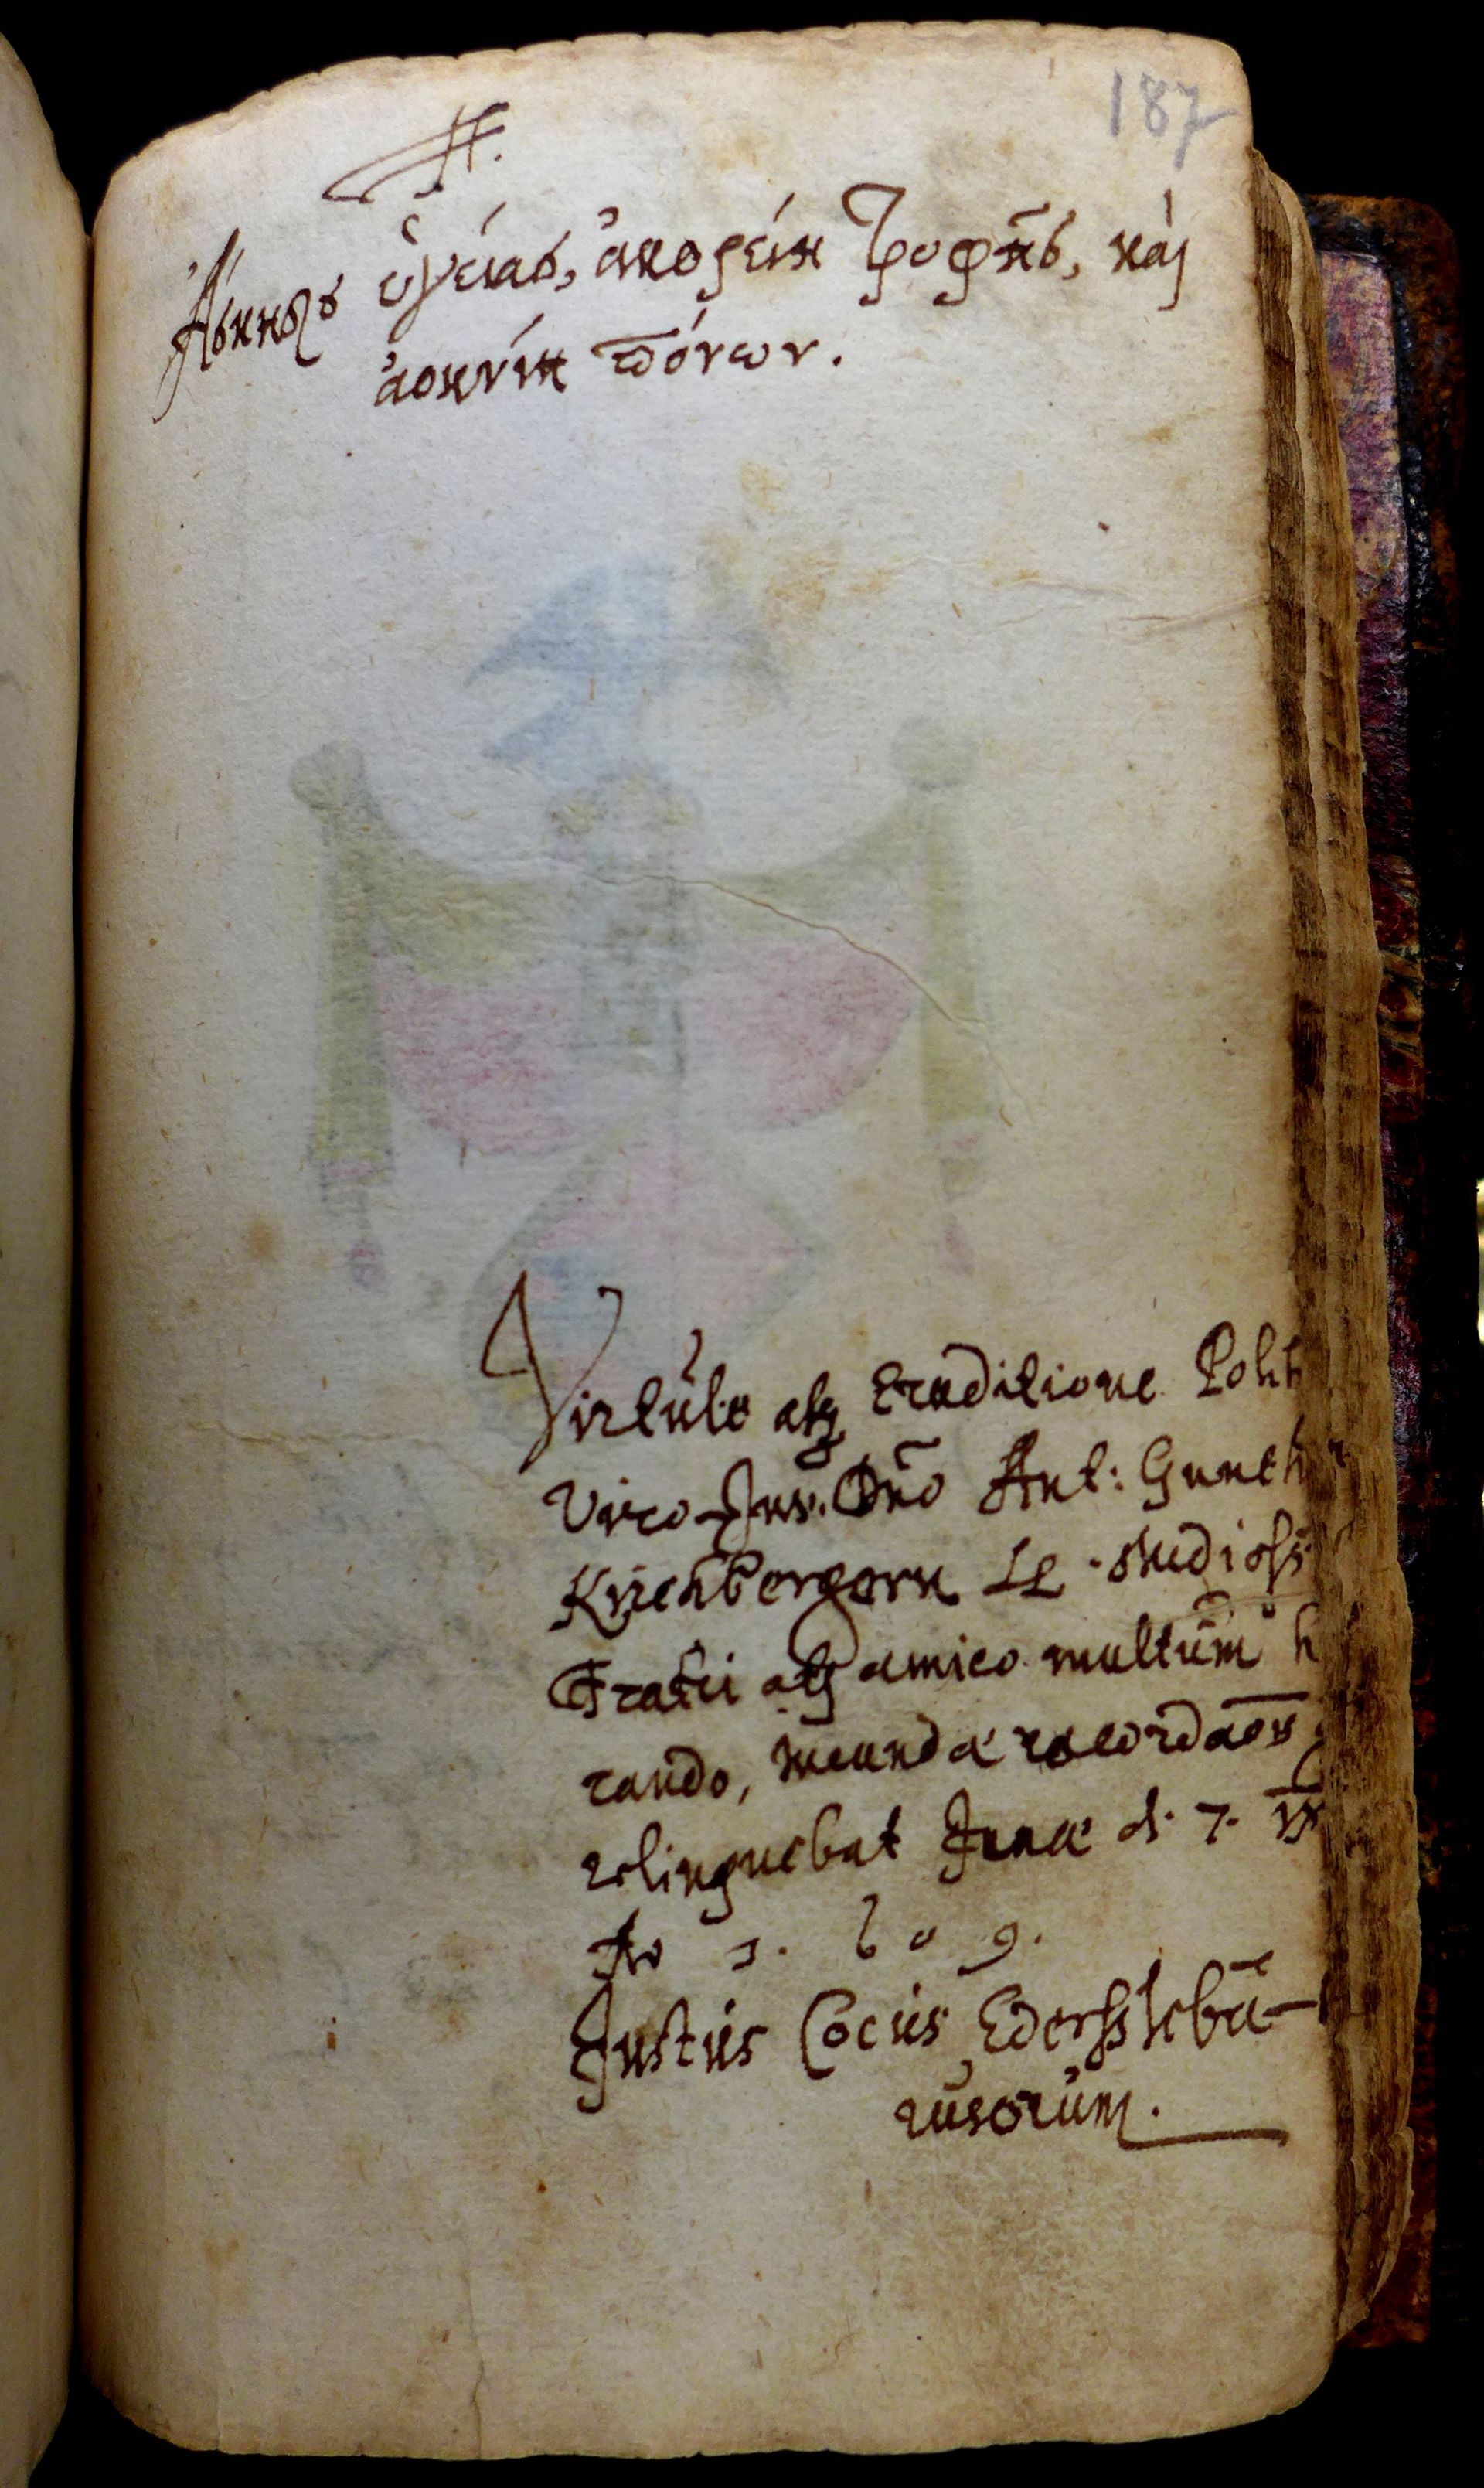 187
Ἄσκησις ὑγείας, ἀκορείη τροφῆς, καὶ
ἀοκνίη πόνων.
Virtute atq Eruditione Polit
Viro-Juv. Dño Ant: Gunth
Kirchbergern LL. studioss
Fratri atq amico multum h
rando, iucundæ recordaõis
relinquebat Jenæ d. 7.
Ao 1. 6 0 9.
Justus Cocus Ederslebā-
rusorum.